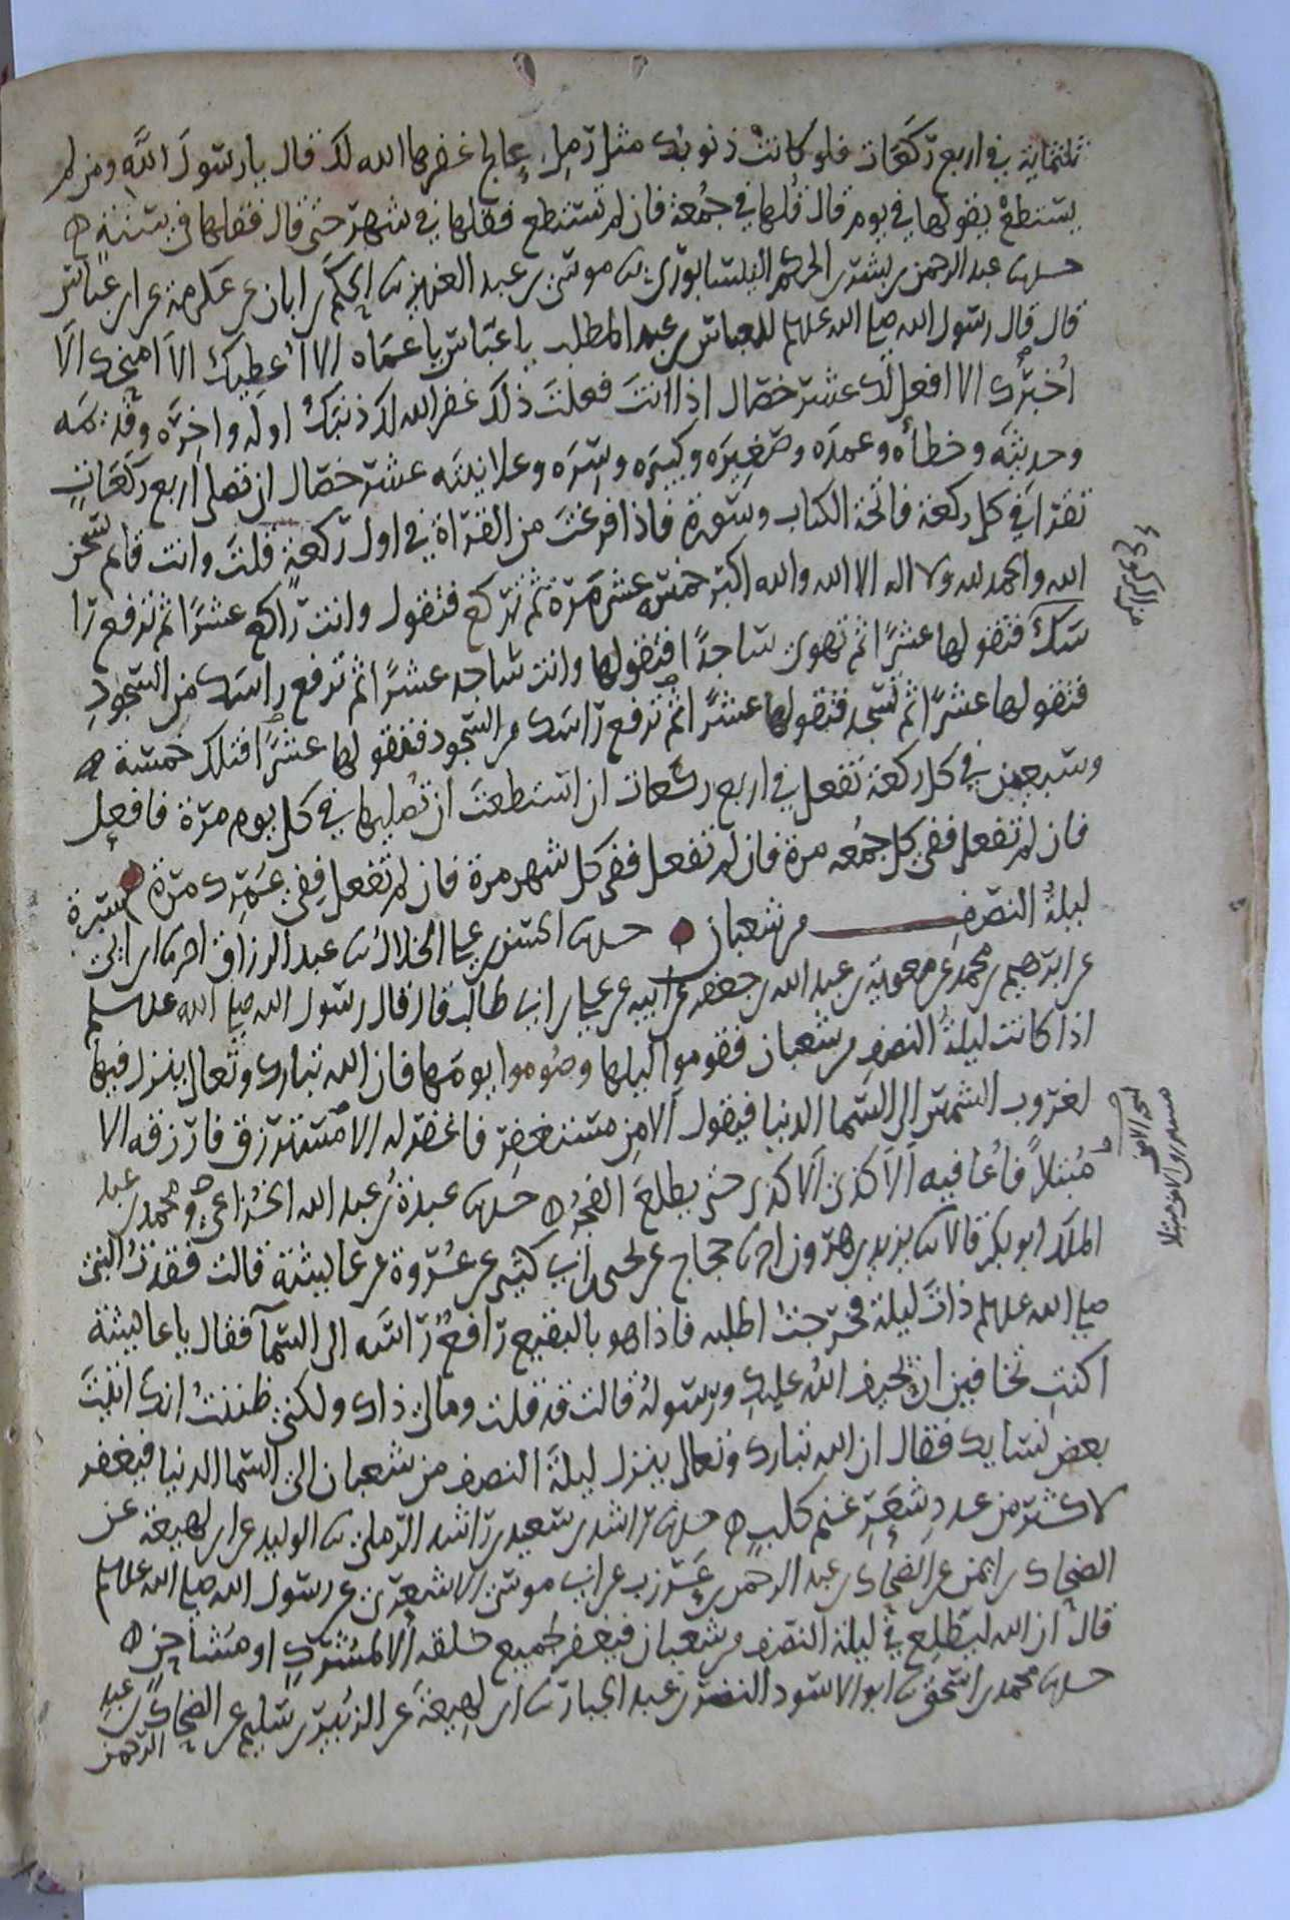 ثلثماية في اربع ركعات فلو كانت ذنوبك مثل رمل عالج غفرها الله لك قال يا رسول الله ومن لم
يستطع يقولها في يوم قال قلها في جمعة فان لم تستطع فقلها في شهر حتى قال فقلها في سنة ه
حدثنا عبد الرحمن بن بشر بن الحكم النيسابوري ثنا موسى بن عبد العزيز ثنا الحكم بن ابان عن عكرمة عن ابن عباس
قال قال رسول الله صلى الله عليه وسلم للعباس بن عبد المطلب يا عباس يا عماه الا اعطيك الا امنحك الا
اخبرك الا افعل لك عشر خصال اذا انت فعلت ذلك غفر الله لك ذنبك اوله واخره وقديمه
وحديثه وخطاه وعمده وصغيره وكبيره وسره وعلانيته عشر خصال ان تصلي اربع ركعات
تقرا في كل ركعة فاتحة الكتاب وسورة فاذا فرغت من القراة في اول ركعة قلت وانت قائم سبحن
الله والحمد لله ولا اله الا الله والله اكبر خمس عشر مرة ثم تركع فتقول وانت راكع عشرا ثم ترفع را
سك فتقولها عشرا ثم تهوي ساجدا فتقولها وانت ساجد عشرا ثم ترفع راسك من السجود
فتقولها عشرا ثم تسجد فتقولها عشرا ثم ترفع راسك من السجود فتقولها عشرا فتلك خمسة ه
وسبعين في كل ركعة تفعل في اربع ركعات ان استطعت ان تصليها في كل يوم مرة فافعل
فان لم تفعل ففي كل جمعه مرة فان لم تفعل ففي كل شهر مرة فان لم تفعل ففي عمرك مرة
ليلة النصف من شعبان حدثنا الحسن بن علي الخلال ثنا عبد الرزاق اخبرنا ابن ابي سبرة
عن ابرهيم بن محمد عن معوية بن عبد الله بن جعفر عن ابيه عن علي بن ابي طالب قال قال رسول الله صلى الله عليه وسلم
اذا كانت ليلة النصف من شعبان فقوموا ليلها وصوموا يومها فان الله تبارك وتعالى ينزل فيها
لغروب الشمس الى السما الدنيا فيقول الا من مستغفر فاغفر له الا مسترزق فارزقه الا
مبتلا فاعافيه الا كذى الا كذى حتى يطلع الفجر ه حدثنا عبدة بن عبد الله الخزاعي ومحمد بن عبد
الملك ابو بكر قالا ثنا يزيد بن هرون اخبرنا حجاج عن يحيى بن ابي كثير عن عروة عن عايشة قالت فقدت النبي
صلى الله عليه وسلم ذات ليلة فخرجت اطلبه فاذا هو بالبقيع رافع راسه الى السما فقال يا عايشة
اكنت تخافين ان يحيف الله عليك ورسوله قالت قد قلت وما بي ذاك ولكني ظننت انك اتيت
بعض نسايك فقال ان الله تبارك وتعالى ينزل ليلة النصف من شعبان الى السما الدنيا فيغفر
لاكثر من عدد شعر غنم كلب ه حدثنا راشد بن سعيد بن راشد الرملي ثنا الوليد عن ابن لهيعة عن
الضحاك بن ايمن عن الضحاك بن عبد الرحمن بن عرزب عن ابي موسى الاشعري عن رسول الله صلى الله عليه وسلم
قال ان الله ليطلع في ليلة النصف من شعبان فيغفر لجميع خلقه الا لمشرك او مشاحن ه
حدثنا محمد بن اسحق ثنا ابو الاسود النضر بن عبد الجبار ثنا ابن لهيعة عن الزبير بن سليم عن الضحاك بن عبد
الرحمن